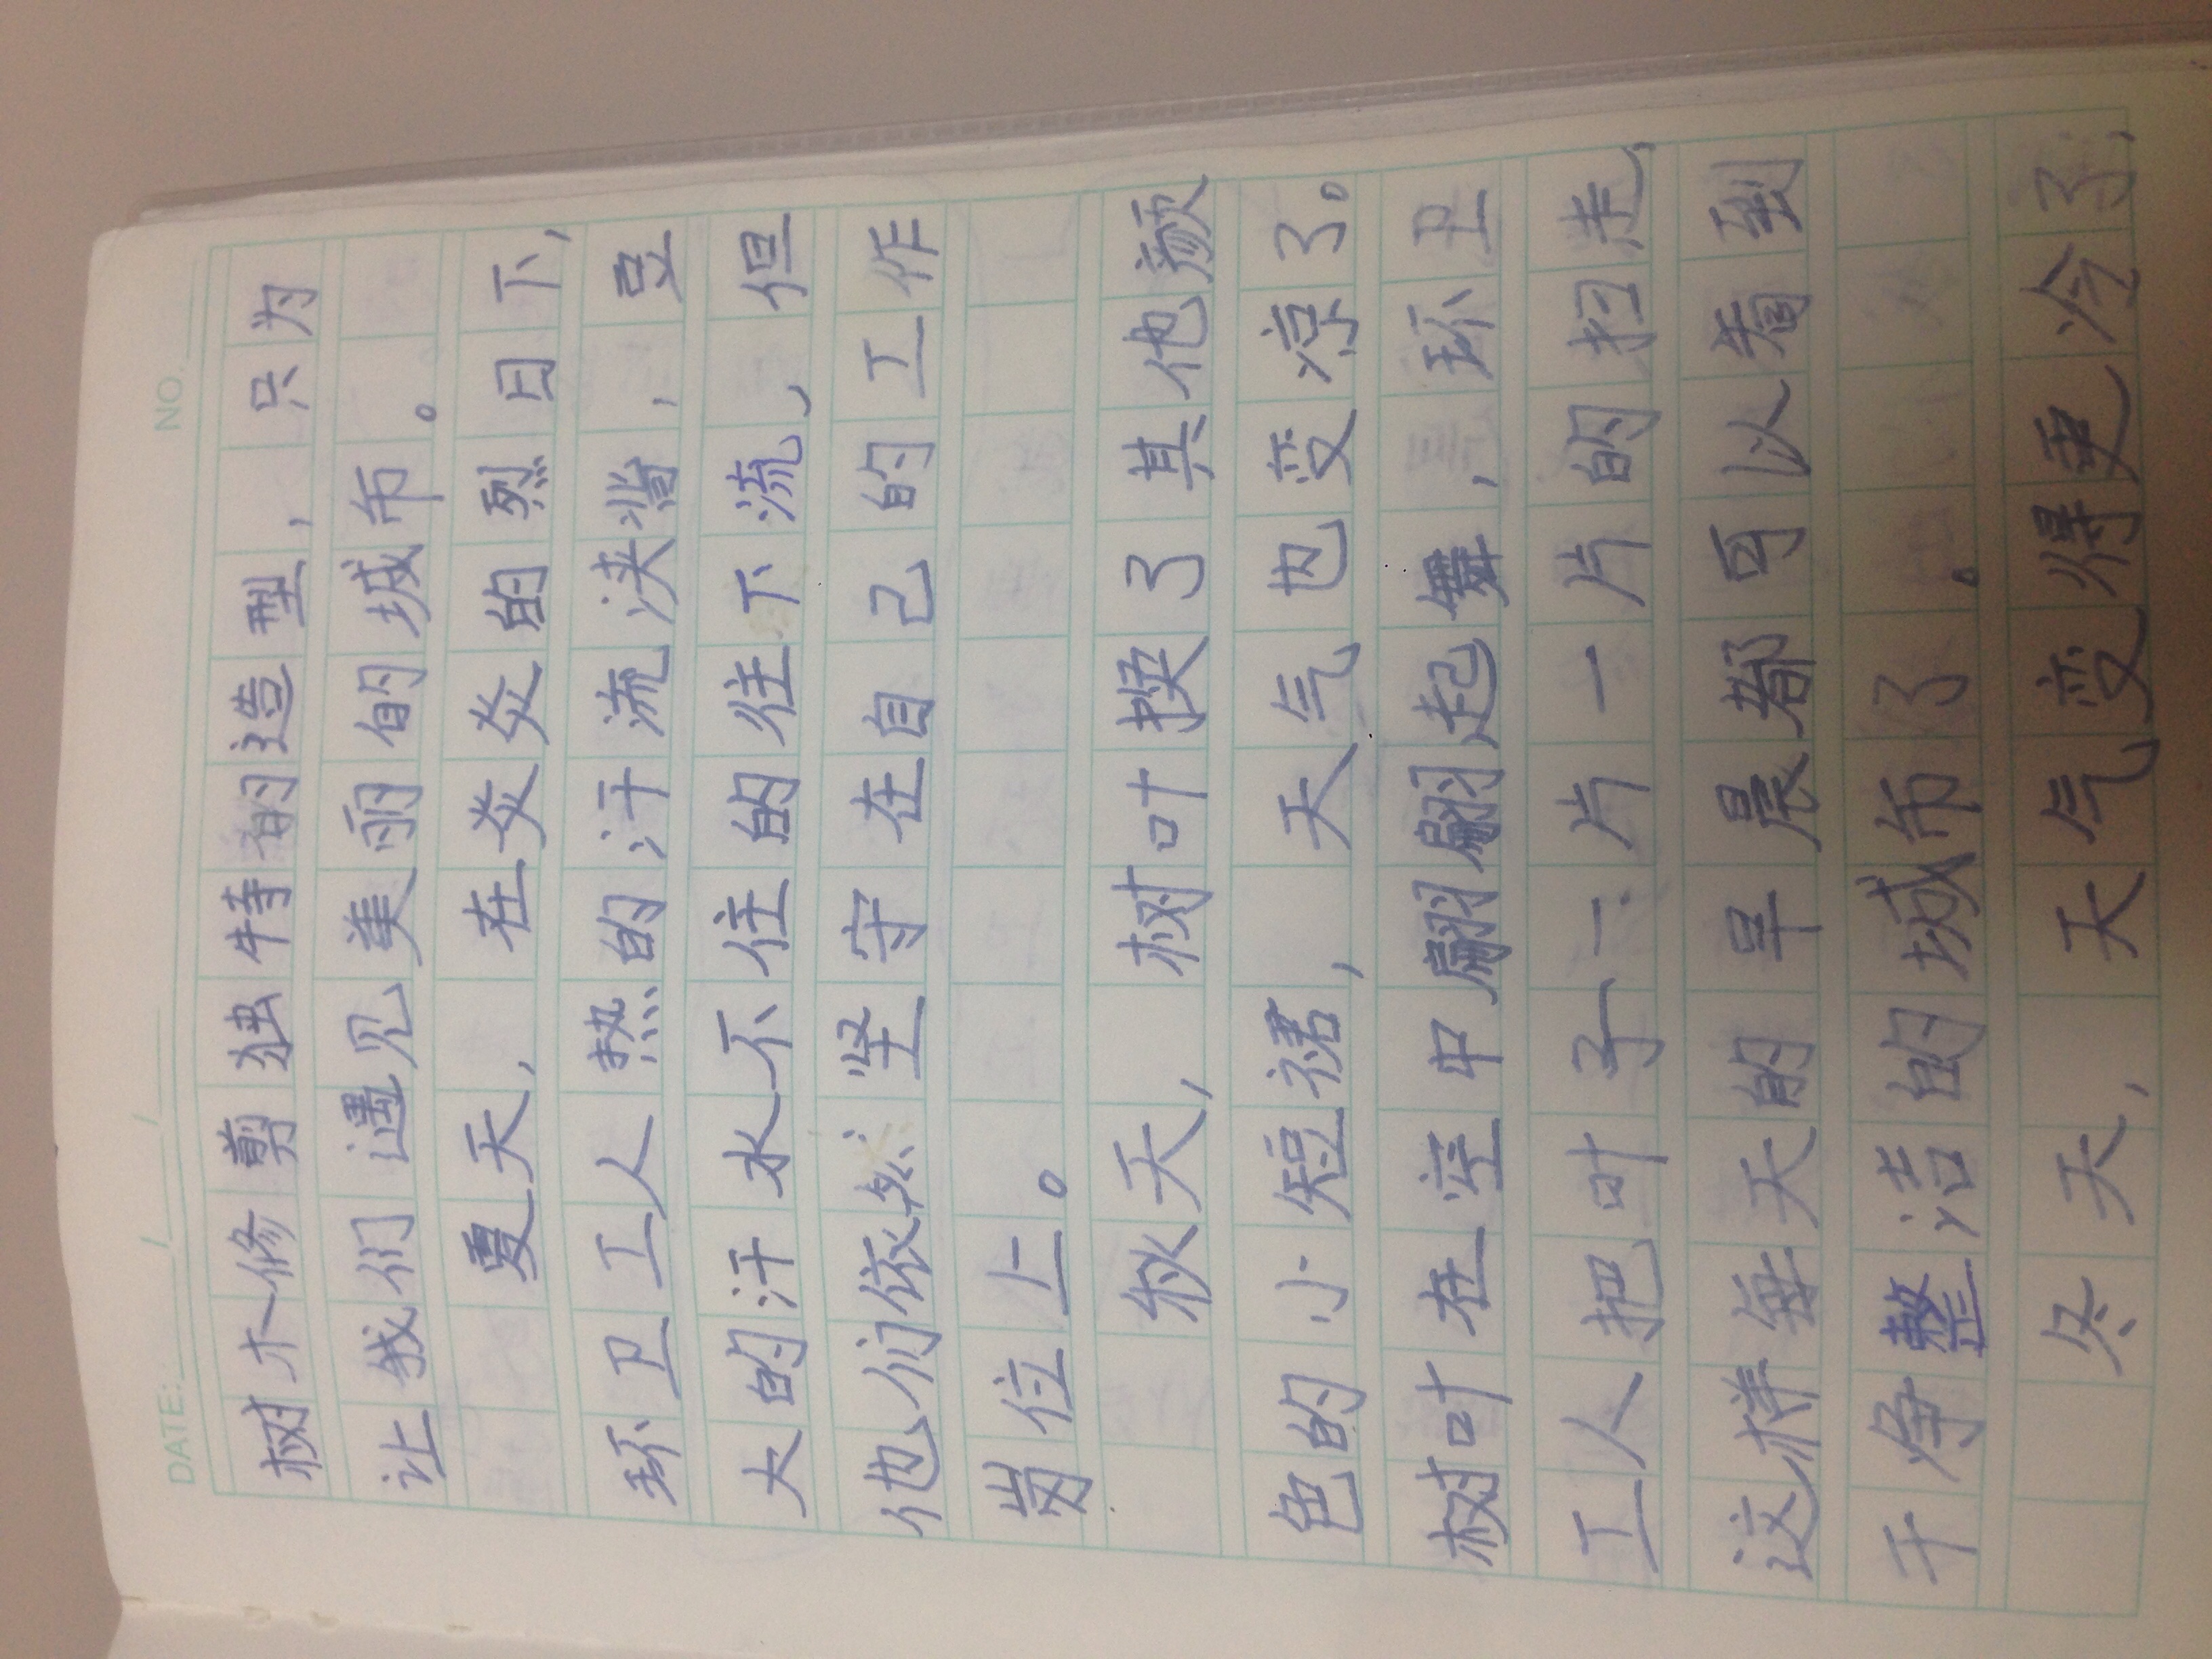 NO.
DATE: / /
树木修剪独特的造型，只为
让我们遇见美丽的城市。
夏天，在炎炎的烈日下，
环卫工人热的汗流浃背，豆
大的汗水不住的往下流，但
他们依然坚守在自己的工作
岗位上。
秋天，树叶换了其他颜
色的小短裙，天气也变凉了。
树叶在空中翩翩起舞，环卫
工人把叶子一片一片的扫走，
这样每天的早晨都可以看到
干净整洁的城市了。
冬天，天气变得更冷了，